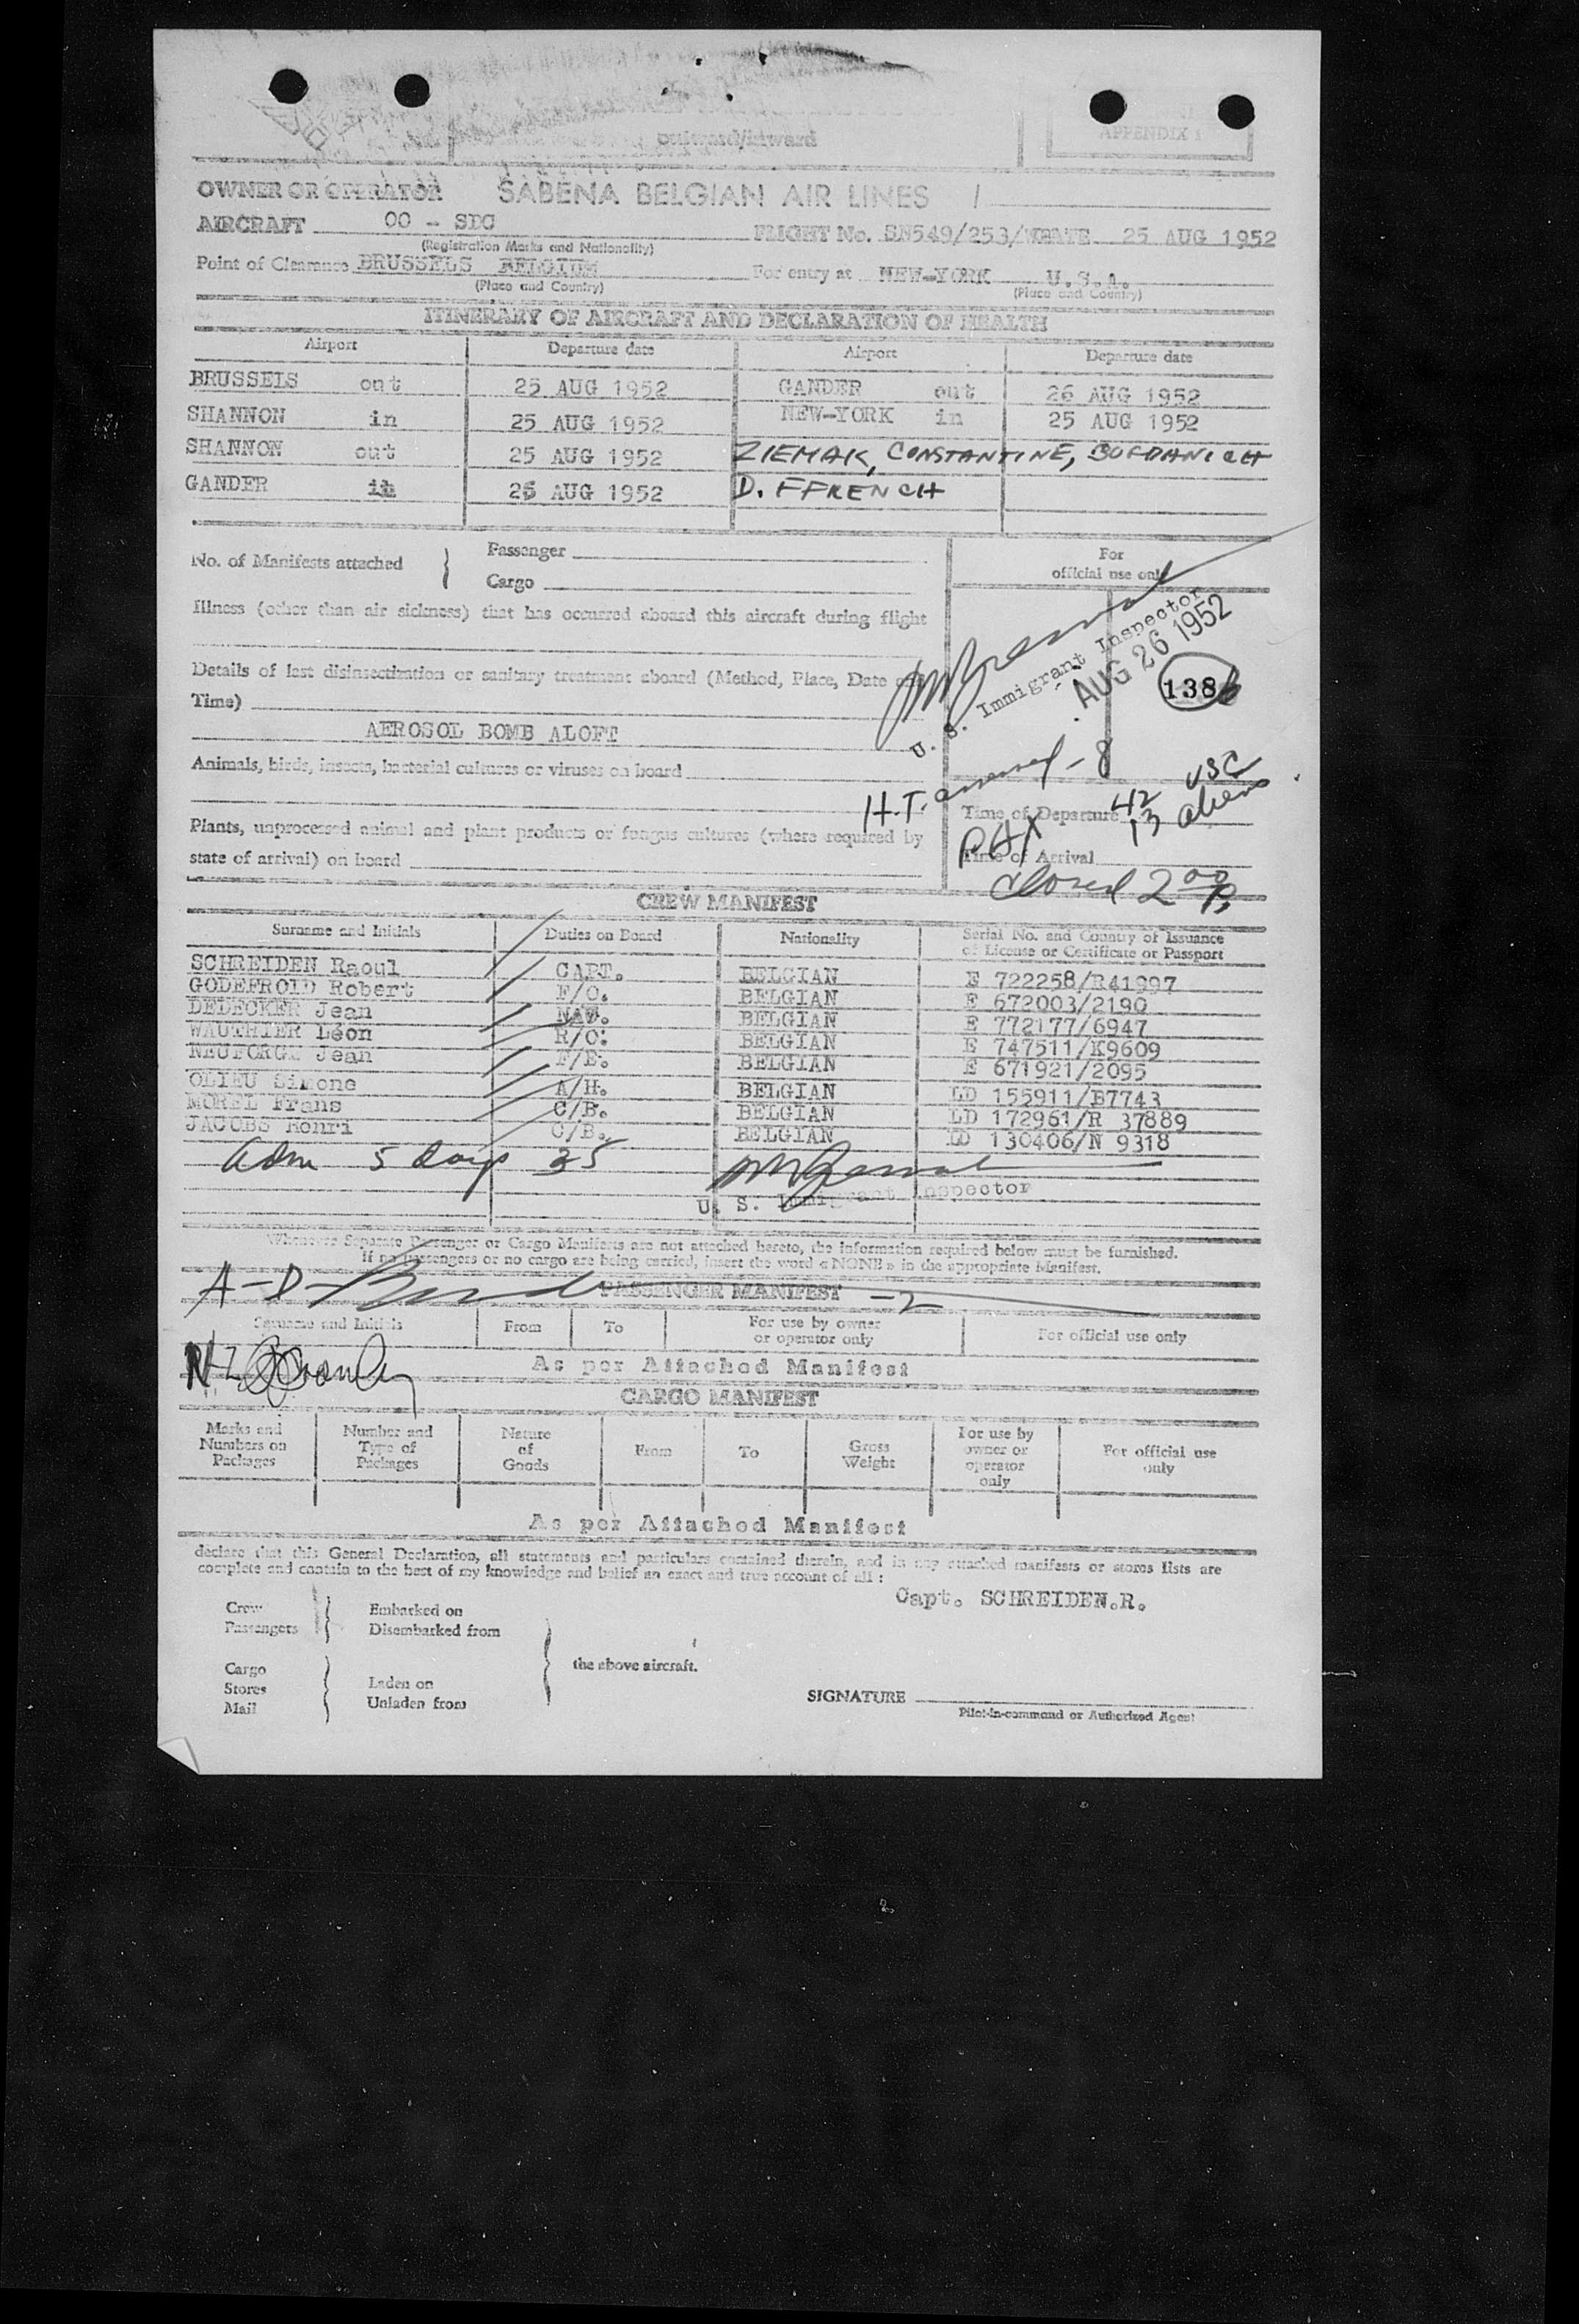 Outward/Inward
APPENDIX 1
OWNER OR OPERATOR SABENA BELGIAN AIR LINES /
AIRCRAFT OO - SDC FLIGHT No. SN549/253/ DATE 25 AUG 1952
(Registration Marks and Nationality)
Point of Clearance BRUSSELS BELGIUM For entry at NEW-YORK U.S.A.
(Place and Country) (Place and Country)
ITINERARY OF AIRCRAFT AND DECLARATION OF HEALTH
Airport Departure date Airport Departure date
BRUSSELS out 25 AUG 1952 GANDER out 26 AUG 1952
SHANNON in 25 AUG 1952 NEW-YORK in 25 AUG 1952
SHANNON out 25 AUG 1952 ZIEMAK, CONSTANTINE, BOGDANICH
GANDER in 26 AUG 1952 D. FFRENCH
No. of Manifests attached } Passenger
Cargo
For
official use only
Illness (other than air sickness) that has occurred aboard this aircraft during flight
U. S. Immigrant Inspector
AUG 26 1952
138
Details of last disinsectization or sanitary treatment aboard (Method, Place, Date and
Time)
AEROSOL BOMB ALOFT
Animals, birds, insects, bacterial cultures or viruses on board
H.T. assessed - 8
42 USC
13 aliens
Time of Departure
Plants, unprocessed animal and plant products or fungus cultures (where required by
state of arrival) on board
Time of Arrival
Closed 2 00 P.
CREW MANIFEST
Surname and Initials Duties on Board Nationality Serial No. and Country of Issuance
of License or Certificate or Passport
SCHREIDEN Raoul CAPT. BELGIAN E 722258/R41997
GODEFROID Robert F/O. BELGIAN E 672003/2190
DEDECKER Jean NAV. BELGIAN E 772177/6947
WAUTHIER Léon R/O. BELGIAN E 747511/K9609
NEUFORGE Jean F/E. BELGIAN E 671921/2095
ODIEU Simone A/H. BELGIAN LD 155911/B7743
MOREL Frans C/B. BELGIAN LD 172961/R 37889
JACOBS Henri C/B. BELGIAN LD 130406/N 9318
adm 5 days 35
U. S. Immigrant Inspector
Whenever Separate Passenger or Cargo Manifests are not attached hereto, the information required below must be furnished.
If no passengers or no cargo are being carried, insert the word « NONE » in the appropriate Manifest.
A-D- PASSENGER MANIFEST -2
Surname and Initials From To For use by owner
or operator only For official use only
As per Attached Manifest
CARGO MANIFEST
Marks and
Numbers on
Packages Number and
Type of
Packages Nature
of
Goods From To Gross
Weight For use by
owner or
operator
only For official use
only
As per Attached Manifest
declare that this General Declaration, all statements and particulars contained therein, and in any attached manifests or stores lists are
complete and contain to the best of my knowledge and belief an exact and true account of all :
Capt. SCHREIDEN.R.
Crew } Embarked on
Passengers } Disembarked from
the above aircraft.
Cargo
Stores } Laden on
Mail Unladen from
SIGNATURE
Pilot-in-command or Authorized Agent